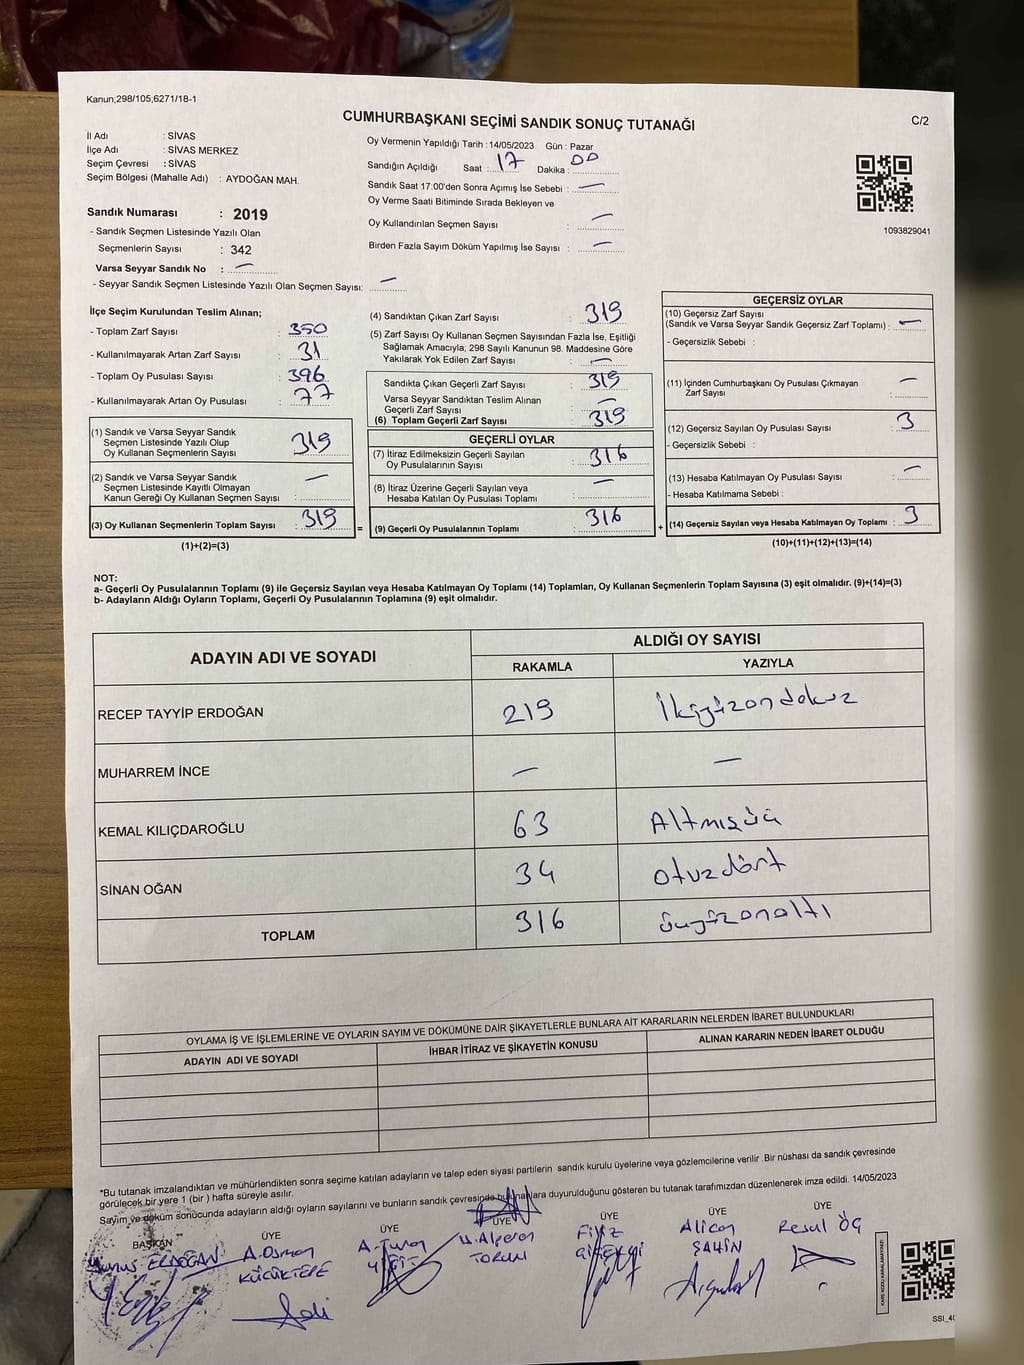 Kanun;298/105;6271/18-1
CUMHURBAŞKANI SEÇİMİ SANDIK SONUÇ TUTANAĞI
C/2
İl Adı : SİVAS
İlçe Adı : SİVAS MERKEZ
Seçim Çevresi : SİVAS
Seçim Bölgesi (Mahalle Adı) : AYDOĞAN MAH.
Sandık Numarası : 2019
- Sandık Seçmen Listesinde Yazılı Olan
Seçmenlerin Sayısı : 342
Varsa Seyyar Sandık No : —
- Seyyar Sandık Seçmen Listesinde Yazılı Olan Seçmen Sayısı: —
Oy Vermenin Yapıldığı Tarih : 14/05/2023 Gün : Pazar
Sandığın Açıldığı Saat : 17 Dakika : 00
Sandık Saat 17:00'den Sonra Açımış İse Sebebi : —
Oy Verme Saati Bitiminde Sırada Bekleyen ve
Oy Kullandırılan Seçmen Sayısı : —
Birden Fazla Sayım Döküm Yapılmış İse Sayısı : —
1093829041
İlçe Seçim Kurulundan Teslim Alınan;
- Toplam Zarf Sayısı : 350
- Kullanılmayarak Artan Zarf Sayısı : 31
- Toplam Oy Pusulası Sayısı : 396
- Kullanılmayarak Artan Oy Pusulası : 77
(1) Sandık ve Varsa Seyyar Sandık
Seçmen Listesinde Yazılı Olup
Oy Kullanan Seçmenlerin Sayısı : 319
(2) Sandık ve Varsa Seyyar Sandık
Seçmen Listesinde Kayıtlı Olmayan
Kanun Gereği Oy Kullanan Seçmen Sayısı : —
(3) Oy Kullanan Seçmenlerin Toplam Sayısı : 319
(1)+(2)=(3)
(4) Sandıktan Çıkan Zarf Sayısı : 319
(5) Zarf Sayısı Oy Kullanan Seçmen Sayısından Fazla İse, Eşitliği
Sağlamak Amacıyla; 298 Sayılı Kanunun 98. Maddesine Göre
Yakılarak Yok Edilen Zarf Sayısı : —
Sandıkta Çıkan Geçerli Zarf Sayısı : 319
Varsa Seyyar Sandıktan Teslim Alınan
Geçerli Zarf Sayısı : —
(6) Toplam Geçerli Zarf Sayısı : 319
GEÇERLİ OYLAR
(7) İtiraz Edilmeksizin Geçerli Sayılan
Oy Pusulalarının Sayısı : 316
(8) İtiraz Üzerine Geçerli Sayılan veya
Hesaba Katılan Oy Pusulası Toplamı : —
= (9) Geçerli Oy Pusulalarının Toplamı : 316
GEÇERSİZ OYLAR
(10) Geçersiz Zarf Sayısı
(Sandık ve Varsa Seyyar Sandık Geçersiz Zarf Toplamı) : —
- Geçersizlik Sebebi :
(11) İçinden Cumhurbaşkanı Oy Pusulası Çıkmayan
Zarf Sayısı : —
(12) Geçersiz Sayılan Oy Pusulası Sayısı : 3
- Geçersizlik Sebebi :
(13) Hesaba Katılmayan Oy Pusulası Sayısı : —
- Hesaba Katılmama Sebebi :
+ (14) Geçersiz Sayılan veya Hesaba Katılmayan Oy Toplamı : 3
(10)+(11)+(12)+(13)=(14)
NOT:
a- Geçerli Oy Pusulalarının Toplamı (9) ile Geçersiz Sayılan veya Hesaba Katılmayan Oy Toplamı (14) Toplamları, Oy Kullanan Seçmenlerin Toplam Sayısına (3) eşit olmalıdır. (9)+(14)=(3)
b- Adayların Aldığı Oyların Toplamı, Geçerli Oy Pusulalarının Toplamına (9) eşit olmalıdır.
ADAYIN ADI VE SOYADI
ALDIĞI OY SAYISI
RAKAMLA YAZIYLA
RECEP TAYYİP ERDOĞAN 219 İkiyüzondokuz
MUHARREM İNCE — —
KEMAL KILIÇDAROĞLU 63 Altmışüç
SİNAN OĞAN 34 otuzdört
TOPLAM 316 üçyüzonaltı
OYLAMA İŞ VE İŞLEMLERİNE VE OYLARIN SAYIM VE DÖKÜMÜNE DAİR ŞİKAYETLERLE BUNLARA AİT KARARLARIN NELERDEN İBARET BULUNDUKLARI
ADAYIN ADI VE SOYADI İHBAR İTİRAZ VE ŞİKAYETİN KONUSU ALINAN KARARIN NEDEN İBARET OLDUĞU
*Bu tutanak imzalandıktan ve mühürlendikten sonra seçime katılan adayların ve talep eden siyasi partilerin sandık kurulu üyelerine veya gözlemcilerine verilir .Bir nüshası da sandık çevresinde
görülecek bir yere 1 (bir ) hafta süreyle asılır.
Sayım ve döküm sonucunda adayların aldığı oyların sayılarını ve bunların sandık çevresinde bulunanlara duyurulduğunu gösteren bu tutanak tarafımızdan düzenlenerek imza edildi. 14/05/2023
BAŞKAN ÜYE ÜYE ÜYE ÜYE ÜYE ÜYE
Yunus ERDOĞAN A.Osman KÜÇÜKTEPE A.Turan YİĞİT Alperen TORUN Filiz Alican ŞAHİN Resul ÖĞ
KARE KODU KARALAMAYINIZ!
SSI_40